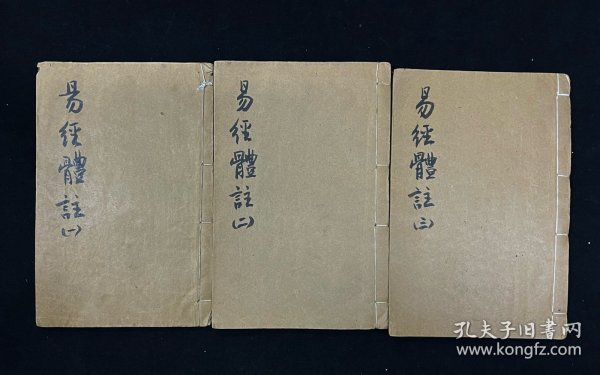 易經體註(一)
易經體註(二)
易經體註(三)
孔夫子旧書网
www.kongfz.com